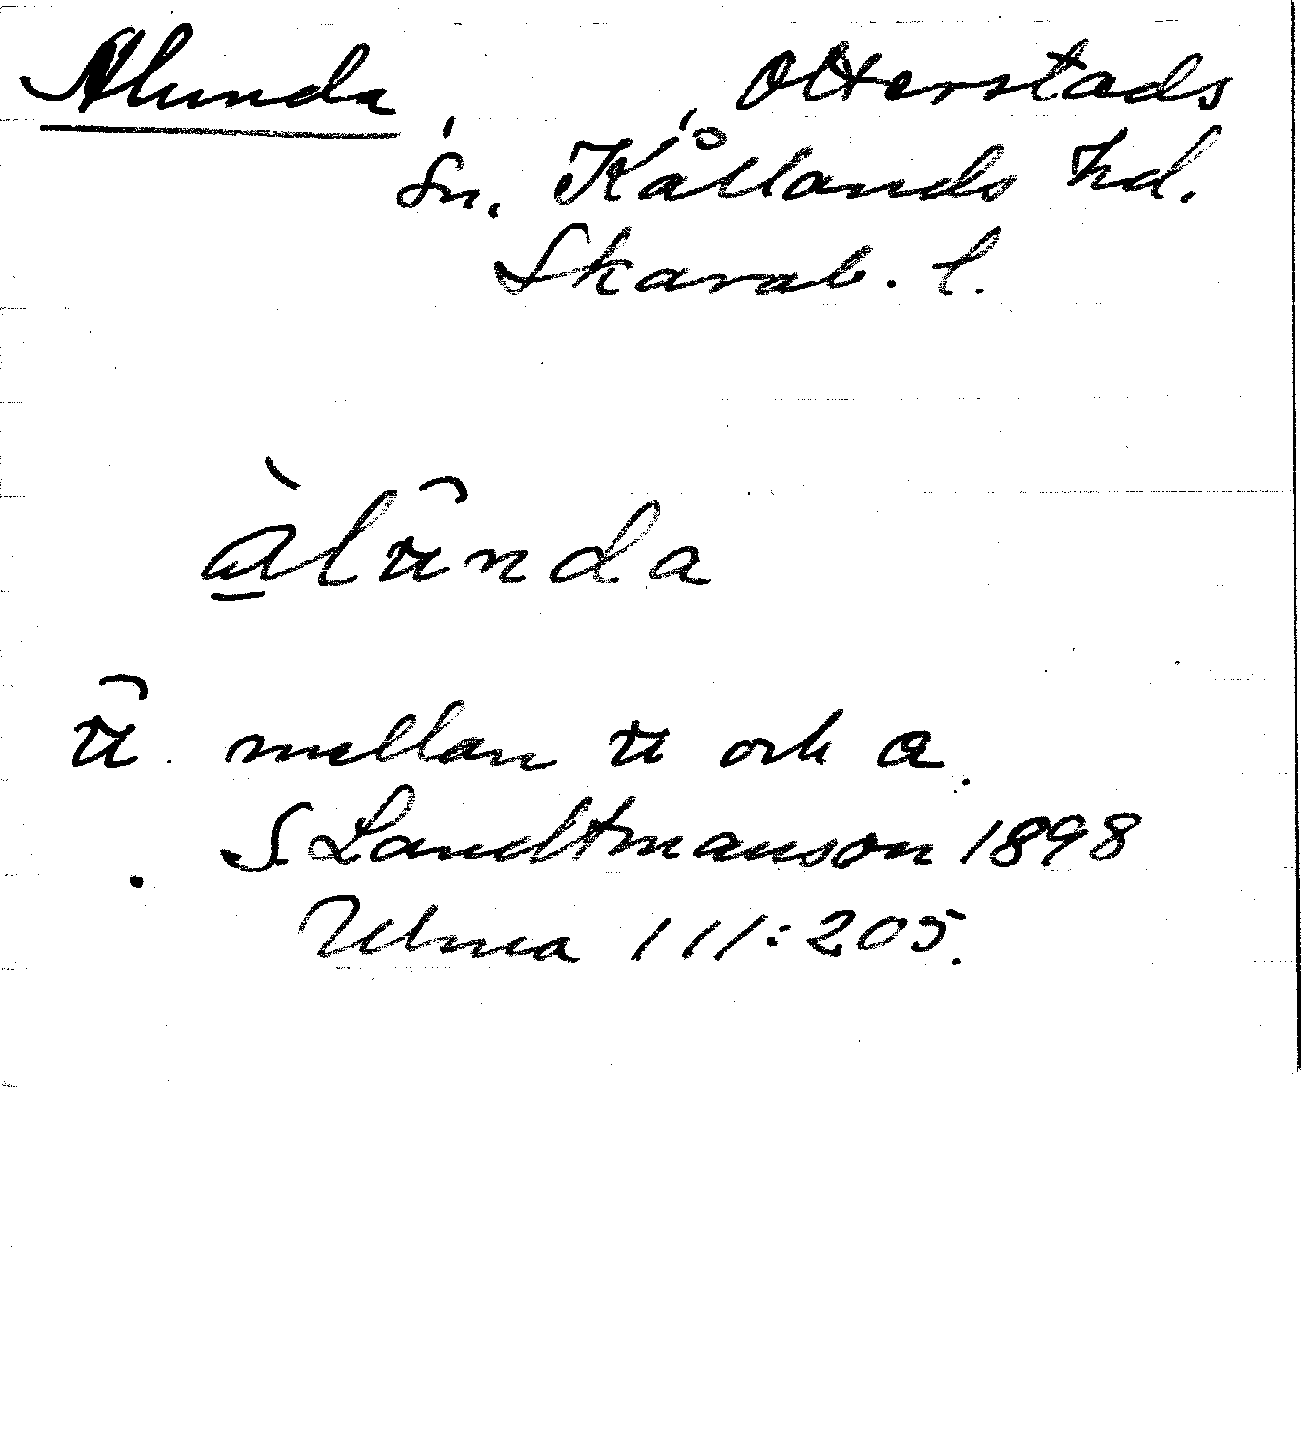 Alunda, , Otterstads
sn. Kållands hd.
Skarab. l.
àlȗnda
ȗ. mellan u och a.
S Landtmanson 1898
Ulma 111:205.